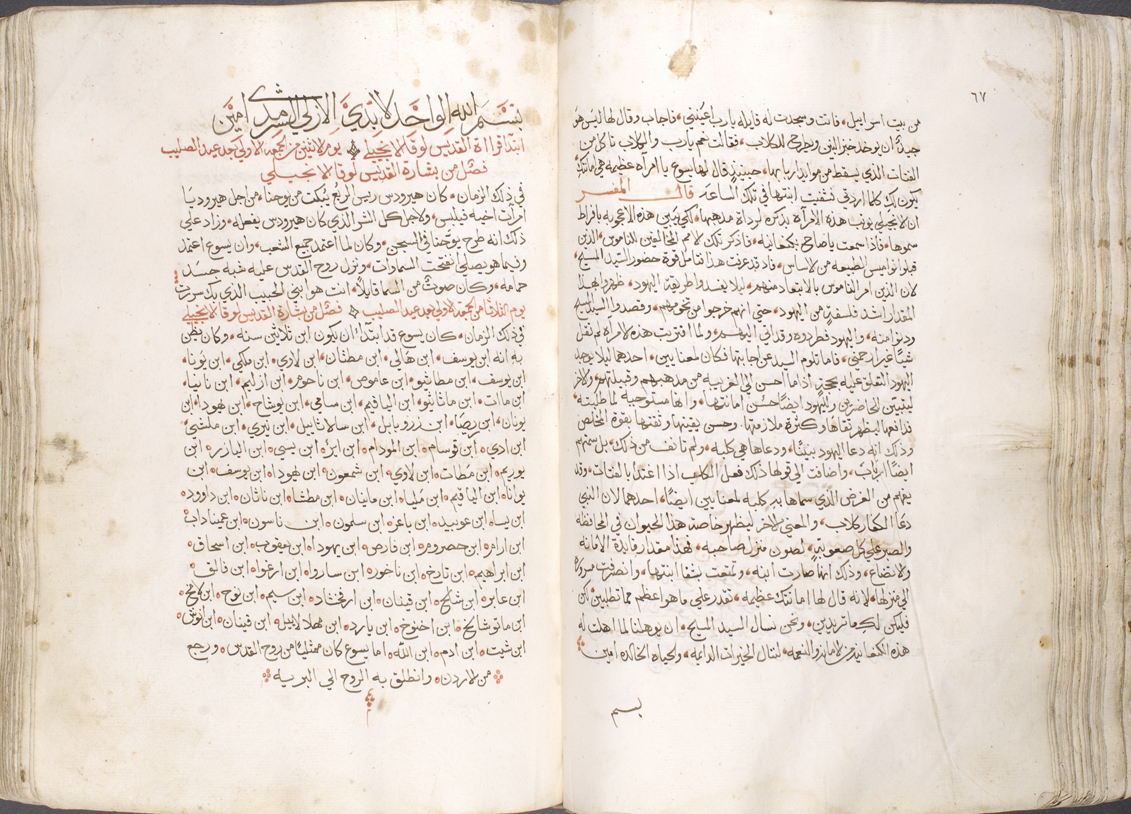 ٦٧
من بيت اسرائيل، فاتت وسجدت له قايله يارب اعيننى، فاجاب وقال لها ليس هو
جيدًا ان يوخد خبز البنين ويطرح للكلاب، فقالت نعم يارب والكلاب تاكل من
الفتات الذي يسقط من موايد اربابها، حينيذ قال لها يسوع يا امراه عظيمه هي امانتك
يكون لك كما اردتي فشفيت ابنتها في تلك الساعه قال المفسر
ان الانجيلي يونب هذه الامرأة بدكن لرداة مدهبها، لكي يبين هذه الاعجوبه بافراط
سموها، فاذا سمعت ياصاح بكنعانيه، فاذكر تلك الامم المخالفين للناموس، الذين
قبلوا نواميس الطبيعه من الاساس، فاد قد عرفت هذا فتامل قوة حضور السيد المسيح
لان الذين امر الناموس بالابتعاد منهم، ليلا يفسدوا طريقة اليهود، ظهروا بهذا
المقدار اشد فلسفة من اليهود، حتى انهم خرجوا من تخومهم، وقصدوا السيد المسيح
ودنوا منه، واليهود فطردوه وقد اتى اليهم، ولما اقتربت هذه الامراه لم تقل
شيًا غير ارحمني، فاما تلوم السيد عن اجابتها فكان لمعنايين، احدهما ليلا يوجد
اليهود التعلق عليه بحجةٍ اذا ما احسن الي الغريبه من مدهبهم وقبيلتهم، والاخر
ليتبين الحاضرين واليهود ايضًا حسن امانتها، وانها مستوجبه لما طلبته
فدافعها ليظهر تقاها وكثرة ملازمتها، وحسن يقينها وثقتها بقوة المخلص
وذلك انه دعا اليهود بنينًا، ودعاها هي كلبه، ولم تانف من ذلك بل سمتهم
ايضًا اربابًا، واضافت الى قولها ذلك فعل الكلاب اذا اغتدا بالفتات، وقد
يفهم من الغرض الذي سماها به كلبه لمعنايين ايضًا، احدهما لان النبي
دعا الكفار كلاب، والمعني الاخر ليظهر خاصة هذا الحيوان في المحافظه
والصبر على كل صعوبةٍ، لصون منزل صاحبه، فهذا مقدار مايدة الامانه
والاتضاع، وذلك انها صارت ابنه، وتمتعت بشفا ابنتها، وانصرفت مسروره
الي منزلها، لانه قال لها امانتك عظيمه، تقدر على ما هو اعظم مما تطلبين لكن
فليكن لك كما تريدين، ونحن نسال السيد المسيح، ان يوهلنا لما اهلت له
هذه الكنعانيه من الامانه والنعمه، لننال الخيرات الدايمه، والحياه الخالده امين
بسم
بسم الله الواحد الابدي الازلي السرمدي امين
ابتدا قراأة القديس لوقا الانجيلي يوم الاثنين من الجمعه الاولي بعد عيد الصليب
فصل من بشارة القديس لوقا الانجيلي
في ذلك الزمان، كان هيرودس رييس الربع يبكت من يوحنا، من اجل هيروديا
امرأت اخيه فيلبس، ولاجل كل الشر الذي كان هيرودس يفعله، وزاد علي
ذلك انه طرح يوحنا في السجن، وكان لما اعتمد جميع الشعب، وان يسوع اعتمد
وفيما هو يصلي انفتحت السماوات، ونزل روح القدس عليه شبه جسد
حمامه، وكان صوتٌ من السما قايلًا، انت هو ابني الحبيب الذي بك سررت
يوم الثلاثا من الجمعه الاولي بعد عيد الصليب فصل من بشارة القديس لوقا الانجيلي
في ذلك الزمان، كان يسوع قد ابتدا ان يكون ابن ثلاثين سنه، وكان يظن
به انه ابن يوسف، ابن هالي، ابن مطثان، ابن لاوي، ابن ملكي، ابن يونا،
ابن يوسف، ابن مطاثيو، ابن عاموص، ابن ناحوم، ابن ازليم، ابن نانيا،
ابن ماات، ابن ماثاثيو، ابن الياقيم، ابن سامي، ابن يوشاح، ابن هودا، ابن
يونان، ابن ريصا، ابن زروبابل، ابن سالاثاييل، ابن نيري، ابن ملشي
ابن ادي، ابن قوسام، ابن المودام، ابن ايرا، ابن يسي، ابن اليازر، ابن
يوريم، ابن مطات، ابن لاوي، ابن شمعون، ابن يهودا، ابن يوسف، ابن
يونا، ابن الياقيم، ابن مليا، ابن ماينان، ابن مطثا، ابن ناثان، ابن داوود،
ابن يسا، ابن عوبيد، ابن باعز، ابن سلمون، ابن ناسون، ابن عميناداب
ابن ارام، ابن حصروم، ابن فارص، ابن يهودا، ابن يعقوب، ابن اسحاق،
ابن ابراهيم، ابن تارخ، ابن ناخور، ابن ساروا، ابن ارغوا، ابن فالق،
ابن عابر، ابن شالخ، ابن قينان، ابن ارفخشاد، ابن سيم، ابن نوح، ابن لامخ
ابن ماتوشالخ، ابن اخنوخ، ابن يارد، ابن مهلالاييل، ابن قينان، ابن انوش،
ابن شيت، ابن ادم، ابن الله، اما يسوع كان ممتليًا من روح القدس، ورجع
من الاردن، وانطلق به الروح الي البريه